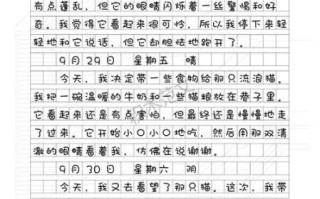 有点蓬乱，但它的眼睛闪烁着一丝警惕和好
奇。我觉得它看起来很可怜，所以我停下来轻
轻地和它说话，但它却胆怯地跑开了。
9月29日 星期五 晴
今天，我决定带一些食物给那只流浪猫。
我把一碗温暖的牛奶和一些猫粮放在巷子里。
它看起来还是有点害怕，但最终还是慢慢地走
了过来。它开始小O小O地吃，然后用那双清
澈的眼睛看着我，仿佛在说谢谢。
9月30日 星期六 阴
今天，我又去看望了那只猫。这次，我带